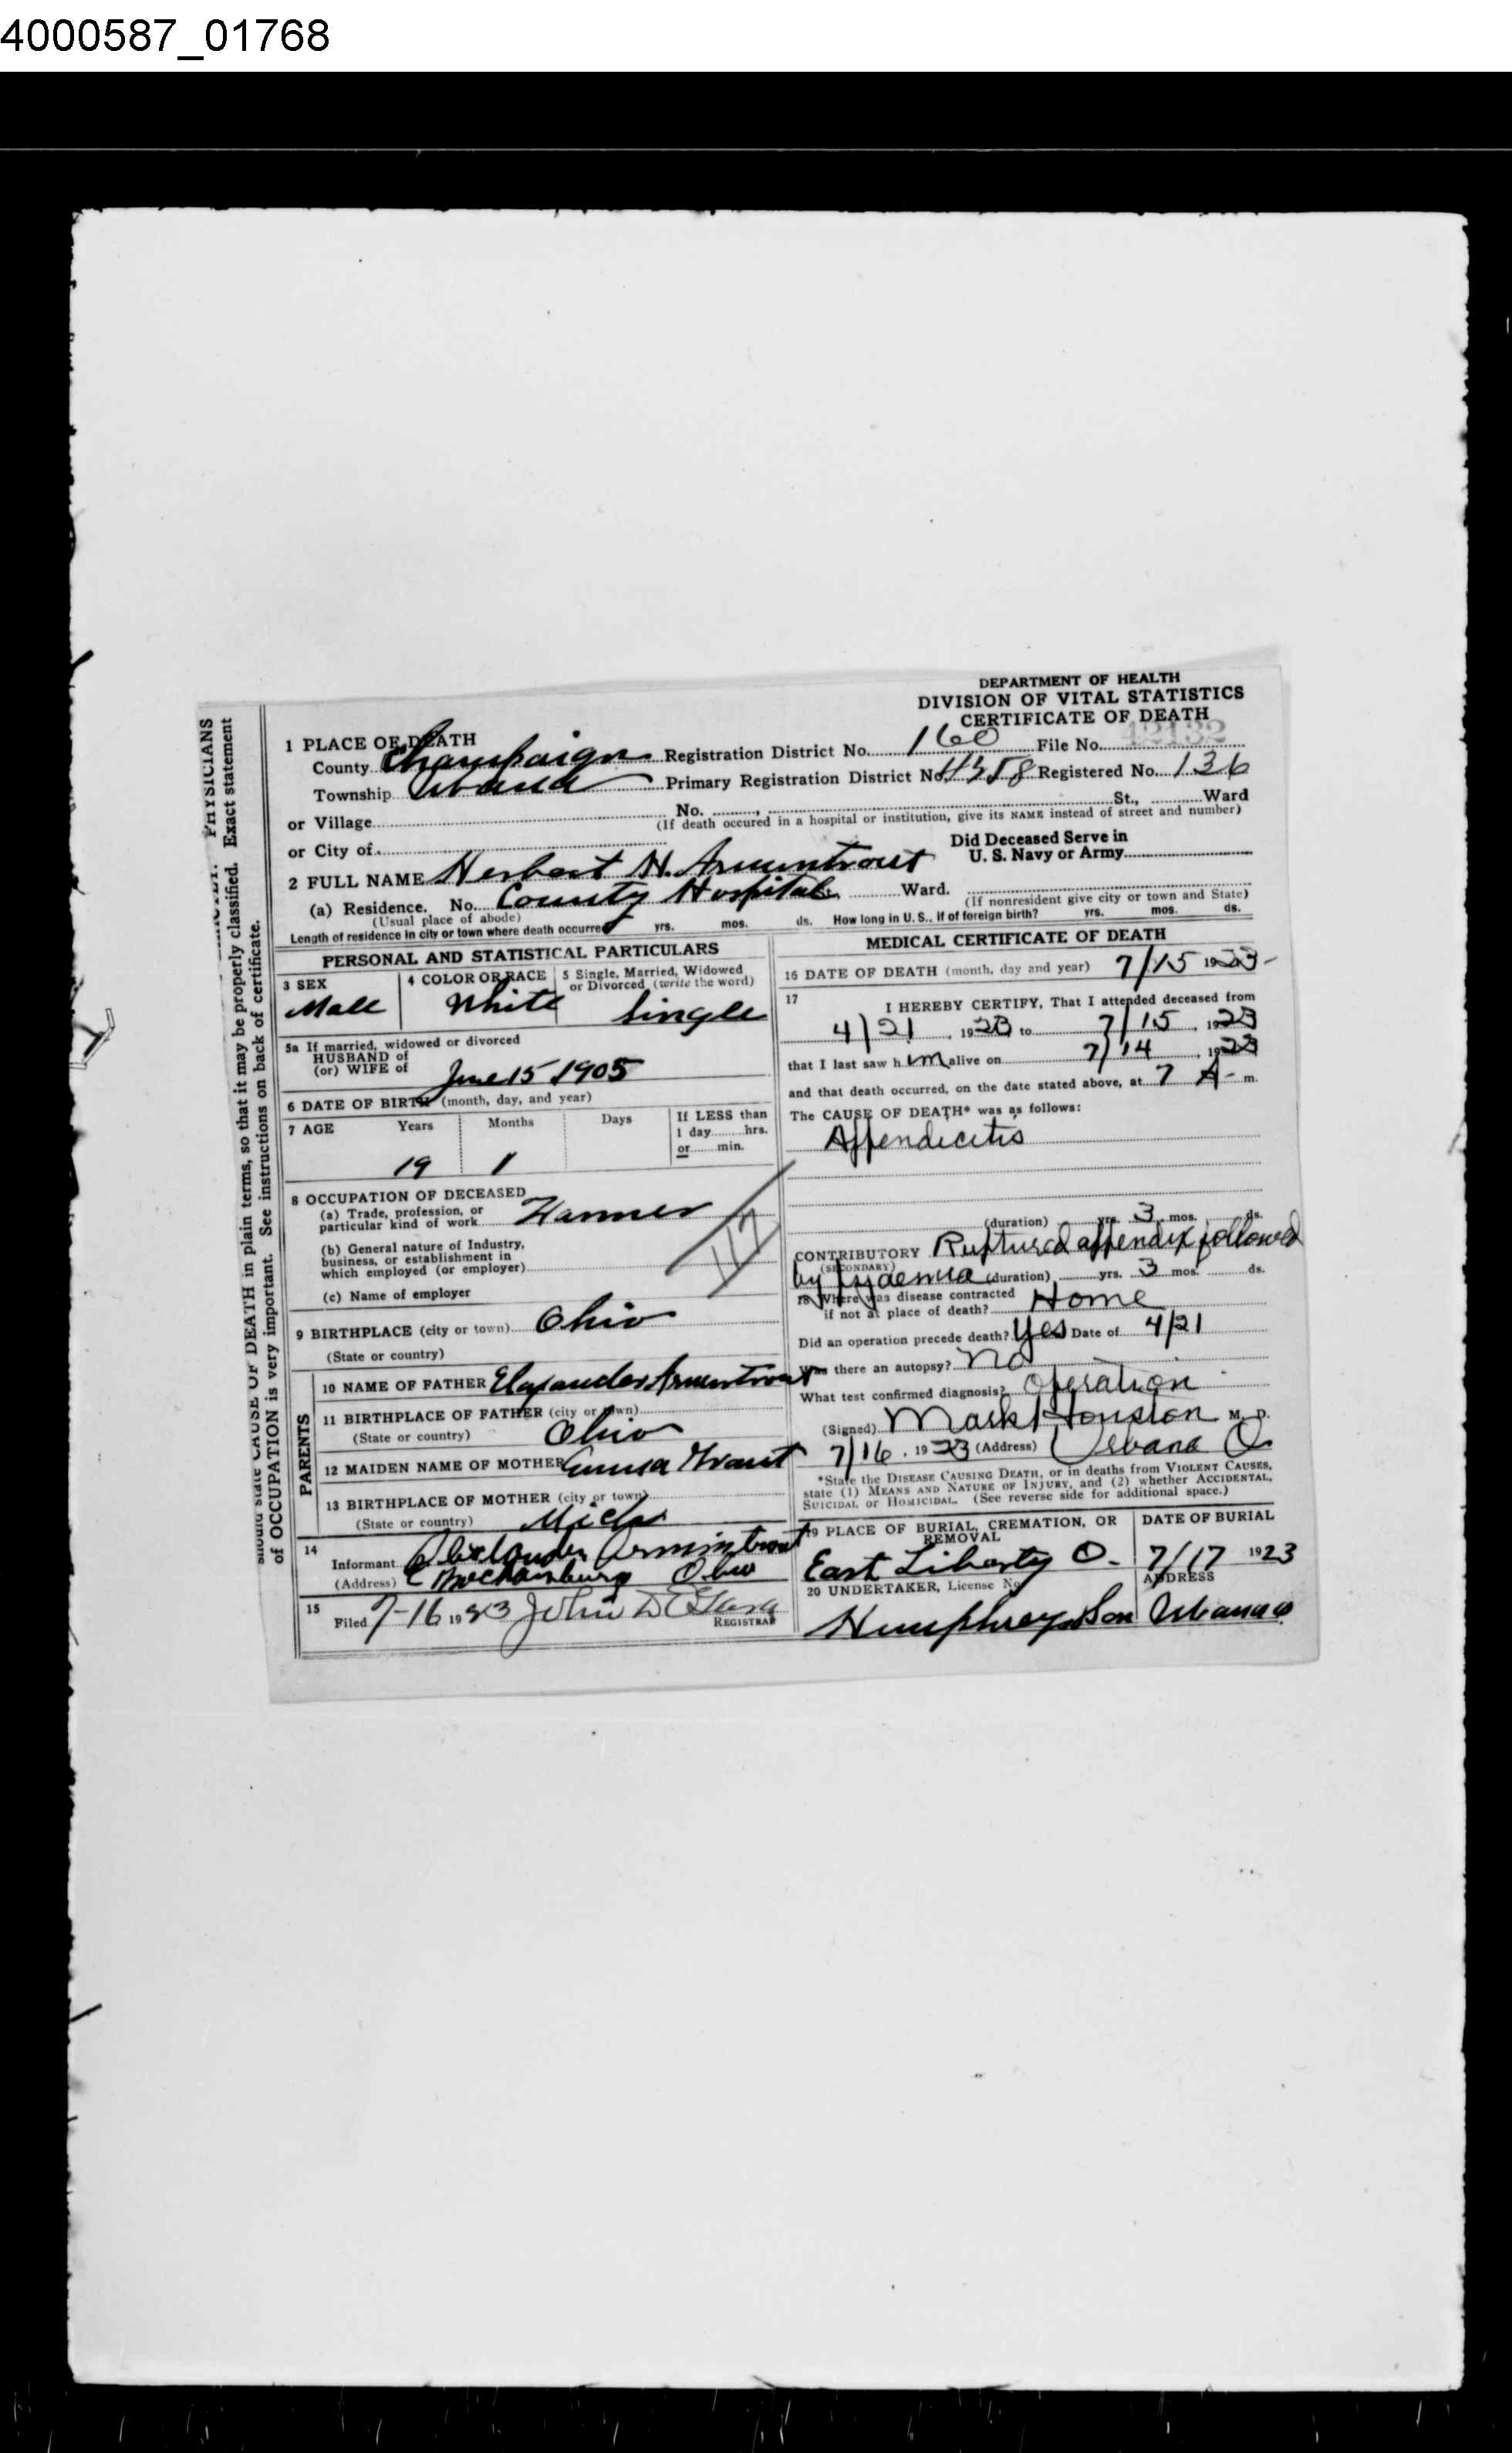 4000587_01768
DEPARTMENT OF HEALTH
DIVISION OF VITAL STATISTICS
CERTIFICATE OF DEATH
1 PLACE OF DEATH
County Champaign Registration District No. 160 File No. 42132
Township Urbana Primary Registration District No. 4358 Registered No. 136
or Village No. St., Ward
(If death occured in a hospital or institution, give its NAME instead of street and number)
or City of
Did Deceased Serve in
U. S. Navy or Army
2 FULL NAME Herbert H. Armentrout
(a) Residence. No. County Hospital Ward.
(Usual place of abode) (If nonresident give city or town and State)
Length of residence in city or town where death occurred yrs. mos. ds. How long in U. S., if of foreign birth? yrs. mos. ds.
PERSONAL AND STATISTICAL PARTICULARS
3 SEX
4 COLOR OR RACE
5 Single, Married, Widowed
or Divorced (write the word)
Male White Single
5a If married, widowed or divorced
HUSBAND of
(or) WIFE of
June 15 1905
6 DATE OF BIRTH (month, day, and year)
7 AGE Years Months Days If LESS than
1 day hrs.
or min.
19 1
8 OCCUPATION OF DECEASED
(a) Trade, profession, or
particular kind of work Farmer
117
(b) General nature of Industry,
business, or establishment in
which employed (or employer)
(c) Name of employer
9 BIRTHPLACE (city or town) Ohio
(State or country)
PARENTS
10 NAME OF FATHER Elaxander Armentrout
11 BIRTHPLACE OF FATHER (city or town)
(State or country) Ohio
12 MAIDEN NAME OF MOTHER Emma Grant
13 BIRTHPLACE OF MOTHER (city or town)
(State or country) Mich
14
Informant Alexlander Armintrout
(Address) Mechanisburg Ohio
15
Filed 7-16 1923 John D
REGISTRAR
MEDICAL CERTIFICATE OF DEATH
16 DATE OF DEATH (month, day and year) 7/15 1923
17
I HEREBY CERTIFY, That I attended deceased from
4/21, 1923 to 7/15, 1923
that I last saw him alive on 7/14, 1923
and that death occurred, on the date stated above, at 7 A m.
The CAUSE OF DEATH* was as follows:
Appendicitis
(duration) yrs. 3 mos. ds.
CONTRIBUTORY Ruptured appendix followed
(SECONDARY)
by Pyaemia (duration) yrs. 3 mos. ds.
18 Where was disease contracted
if not at place of death? Home
Did an operation precede death? Yes Date of 4/21
Was there an autopsy? no
What test confirmed diagnosis? Operation
(Signed) Mark Houston M. D.
7/16, 1923 (Address) Urbana O
*State the DISEASE CAUSING DEATH, or in deaths from VIOLENT CAUSES,
state (1) MEANS AND NATURE OF INJURY, and (2) whether ACCIDENTAL,
SUICIDAL or HOMICIDAL. (See reverse side for additional space.)
19 PLACE OF BURIAL, CREMATION, OR
REMOVAL
DATE OF BURIAL
East Liberty O. 7/17 1923
20 UNDERTAKER, License No.
ADDRESS
Humphrey & Son Urbana O
PHYSICIANS
should state CAUSE OF DEATH in plain terms, so that it may be properly classified. Exact statement
of OCCUPATION is very important. See instructions on back of certificate.